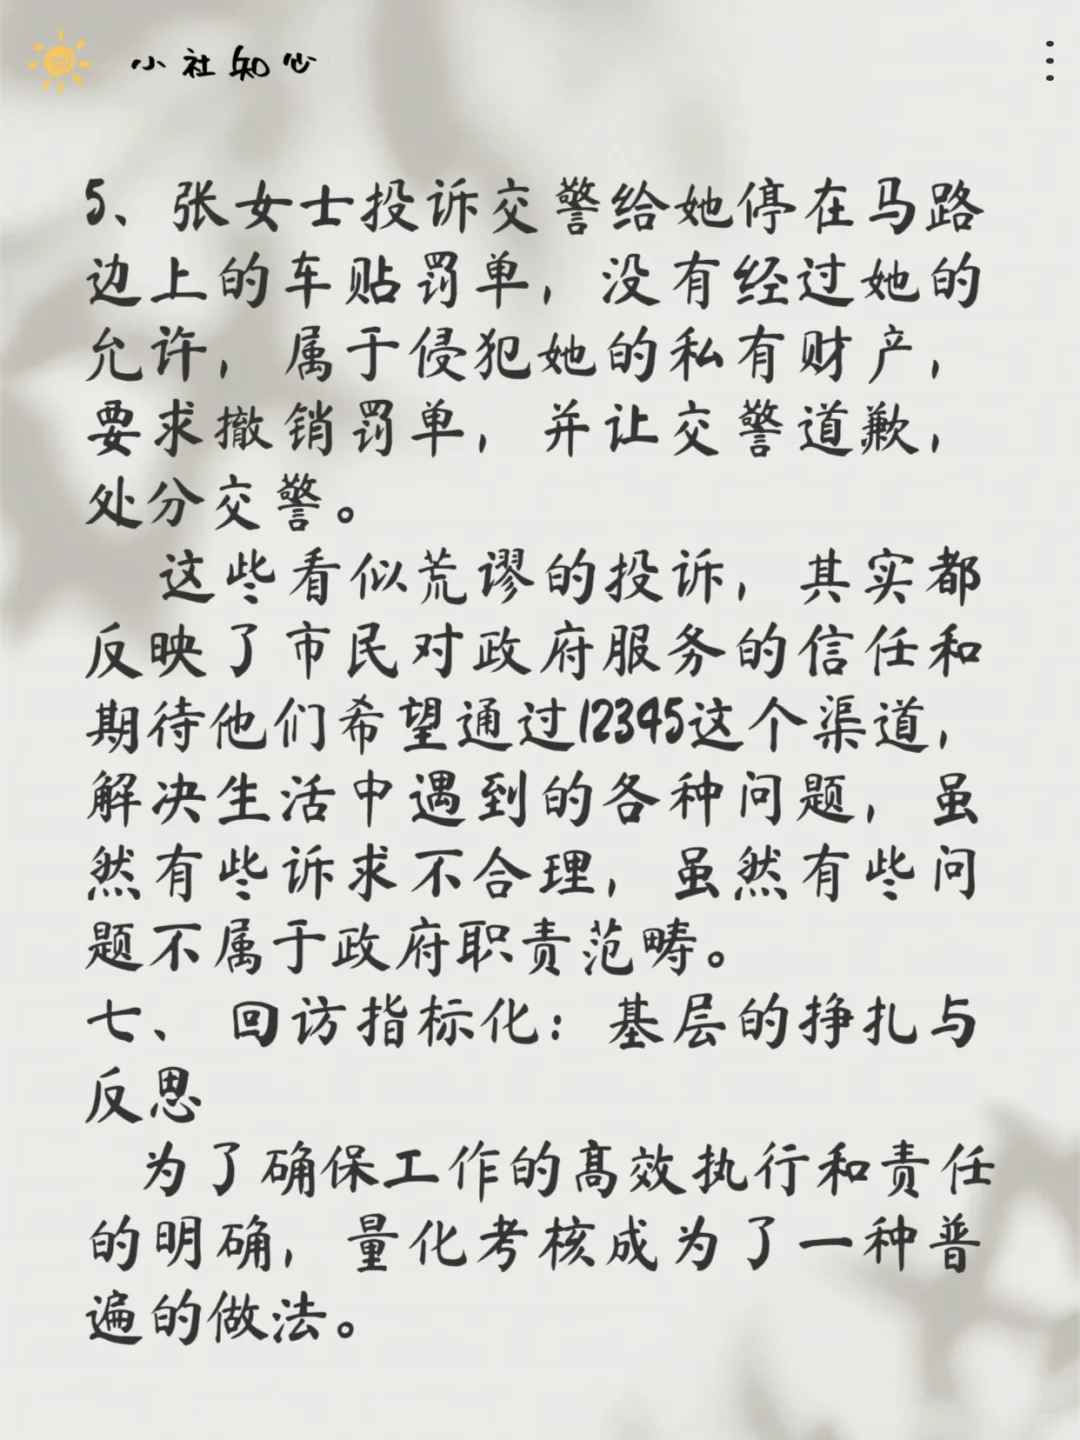 小社知心
5、张女士投诉交警给她停在马路
边上的车贴罚单，没有经过她的
允许，属于侵犯她的私有财产，
要求撤销罚单，并让交警道歉，
处分交警。
这些看似荒谬的投诉，其实都
反映了市民对政府服务的信任和
期待他们希望通过12345这个渠道，
解决生活中遇到的各种问题，虽
然有些诉求不合理，虽然有些问
题不属于政府职责范畴。
七、回访指标化：基层的挣扎与
反思
为了确保工作的高效执行和责任
的明确，量化考核成为了一种普
遍的做法。